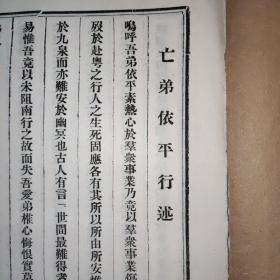 亡弟依平行述
嗚呼吾弟依平素熱心於羣衆事業乃竟以羣衆事業
歿於赴粵之行人之生死固應各有其所以所由所安
於九泉而亦難安於幽冥也古人有言「世間最難得
易惟吾竟以未阻南行之故而失吾愛弟椎心悔恨實